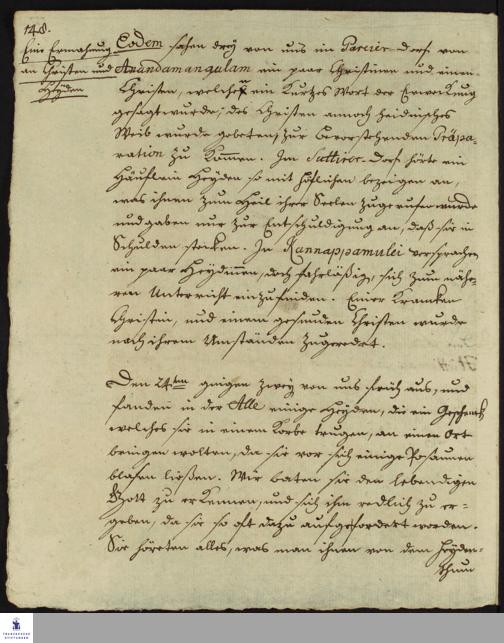 148.
Eine Ermahnung
an Christen und
Heyden
Eodem sahen drey von uns im Pareier-Dorf von
Anandamangalam ein paar Christinen und einen
Christen, welchen ein kurtzes Wort der Erweckung
gesagt wurde; des Christen annoch heidnisches
Weib wurde gebeten, zur bevorstehenden Präpa-
ration zu kommen. Im Suttirer-Dorf hörte ein
Häuflein Heyden so mit höflichen bezeigen an,
was ihnen zum Heil ihrer Seelen zugerufen wurde
und gaben nur zur Entschuldigung an, daß sie in
Schulden stecken. In Kannappamulei versprachen
ein paar Heydinnen, doch fahrläßig, sich zum näh-
ren Unterricht einzufinden. Einer Krancken
Christin, und einem gesunden Christen wurde
nach ihrem Umständen zugeredet.
Den 24ten gingen zwey von uns früh aus, und
fanden in der Allee einige Heyden, die ein Geschenck
welches sie in einem Korbe trugen, an einen Ort
bringen wolten, da sie vor sich einige Posaunen
blasen ließen. Wir baten sie den lebendigen
Gott zu erkennen, und sich ihm redlich zu er-
geben, da sie so oft dazu aufgefordert worden.
Sie höreten alles, was man ihnen von dem Heyden-
thum
FRANCKESCHE
STIFTUNGEN